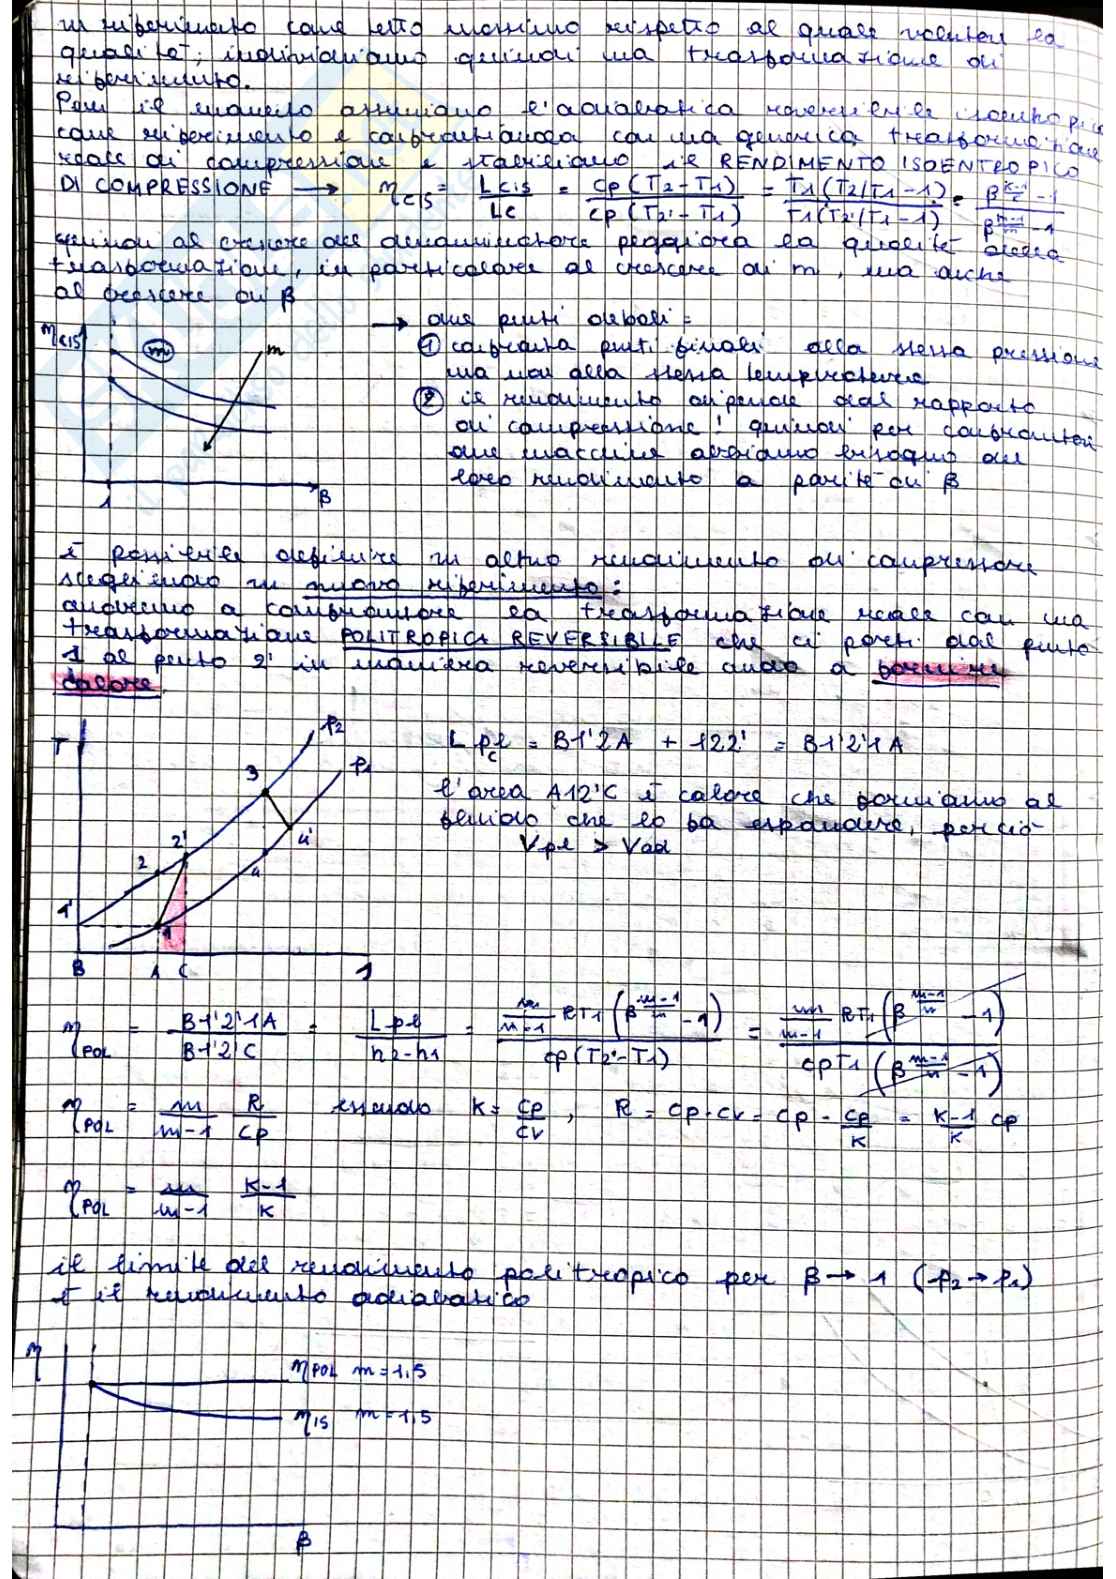 un riferimento come tetto massimo rispetto al quale valutare la
qualità; individuiamo quindi una trasformazione di
riferimento.
Per il momento assumiamo l'adiabatica reversibile isentropica
come riferimento e confrontandola con una generica trasformazione
reale di compressione e stabiliamo il RENDIMENTO ISOENTROPICO
DI COMPRESSIONE → η_CIS = L_CIS / L_C = cp (T2 - T1) / cp (T2' - T1) = T1 (T2/T1 - 1) / T1 (T2'/T1 - 1) = β^((K-1)/K) - 1 / β^((m-1)/m) - 1
quindi al crescere del denominatore peggiora la qualità della
trasformazione, in particolare al crescere di m, ma anche
al crescere di β
η_CIS m m β 1
→ due punti deboli:
① confronta punti finali alla stessa pressione
ma non alla stessa temperatura
② il rendimento dipende dal rapporto
di compressione! quindi per confrontare
due macchine abbiamo bisogno del
loro rendimento a parità di β
È possibile definire un altro rendimento di compressione
scegliendo un nuovo riferimento:
andremo a confrontare la trasformazione reale con una
trasformazione POLITROPICA REVERSIBILE che ci porti dal punto
1 al punto 2' in maniera reversibile ando a fornire
calore.
T p2 p1 3 2' 2 4' 4 1' 1 B A C
L pl c = B1'2A + 122' = B1'2'1A
l'area A12'C è calore che forniamo al
fluido che lo fa espandere, perciò
V pl > V ad
η_POL = B1'2'1A / B1'2'C = L pl / h2 - h1 = m/(m-1) RT1 (β^((m-1)/m) - 1) / cp (T2' - T1) = m/(m-1) RT1 (β^((m-1)/m) - 1) / cpT1 (β^((m-1)/m) - 1)
η_POL = m/(m-1) R/cp essendo K = cp/cv , R = cp - cv = cp - cp/K = (K-1)/K cp
η_POL = m/(m-1) (K-1)/K
il limite del rendimento politropico per β → 1 (p2 → p1)
è il rendimento adiabatico
η
η_POL m = 1,5
η_IS m = 1,5
β